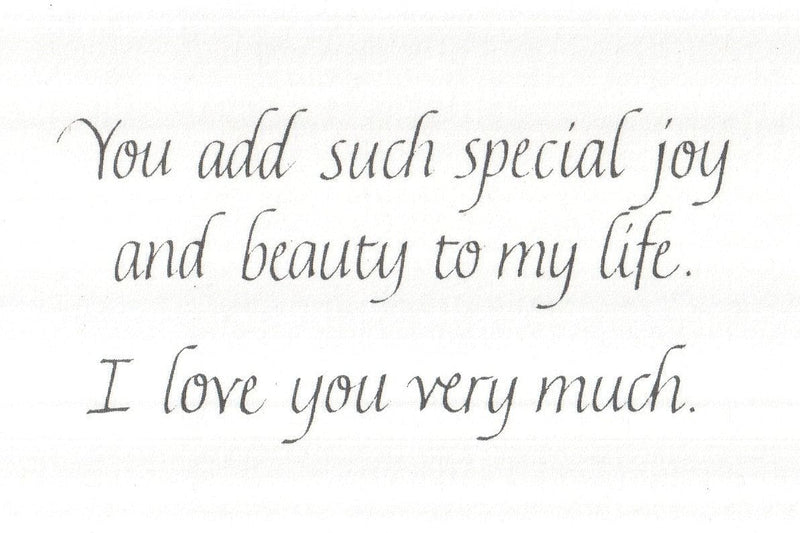 You add such special joy
and beauty to my life.
I love you very much.